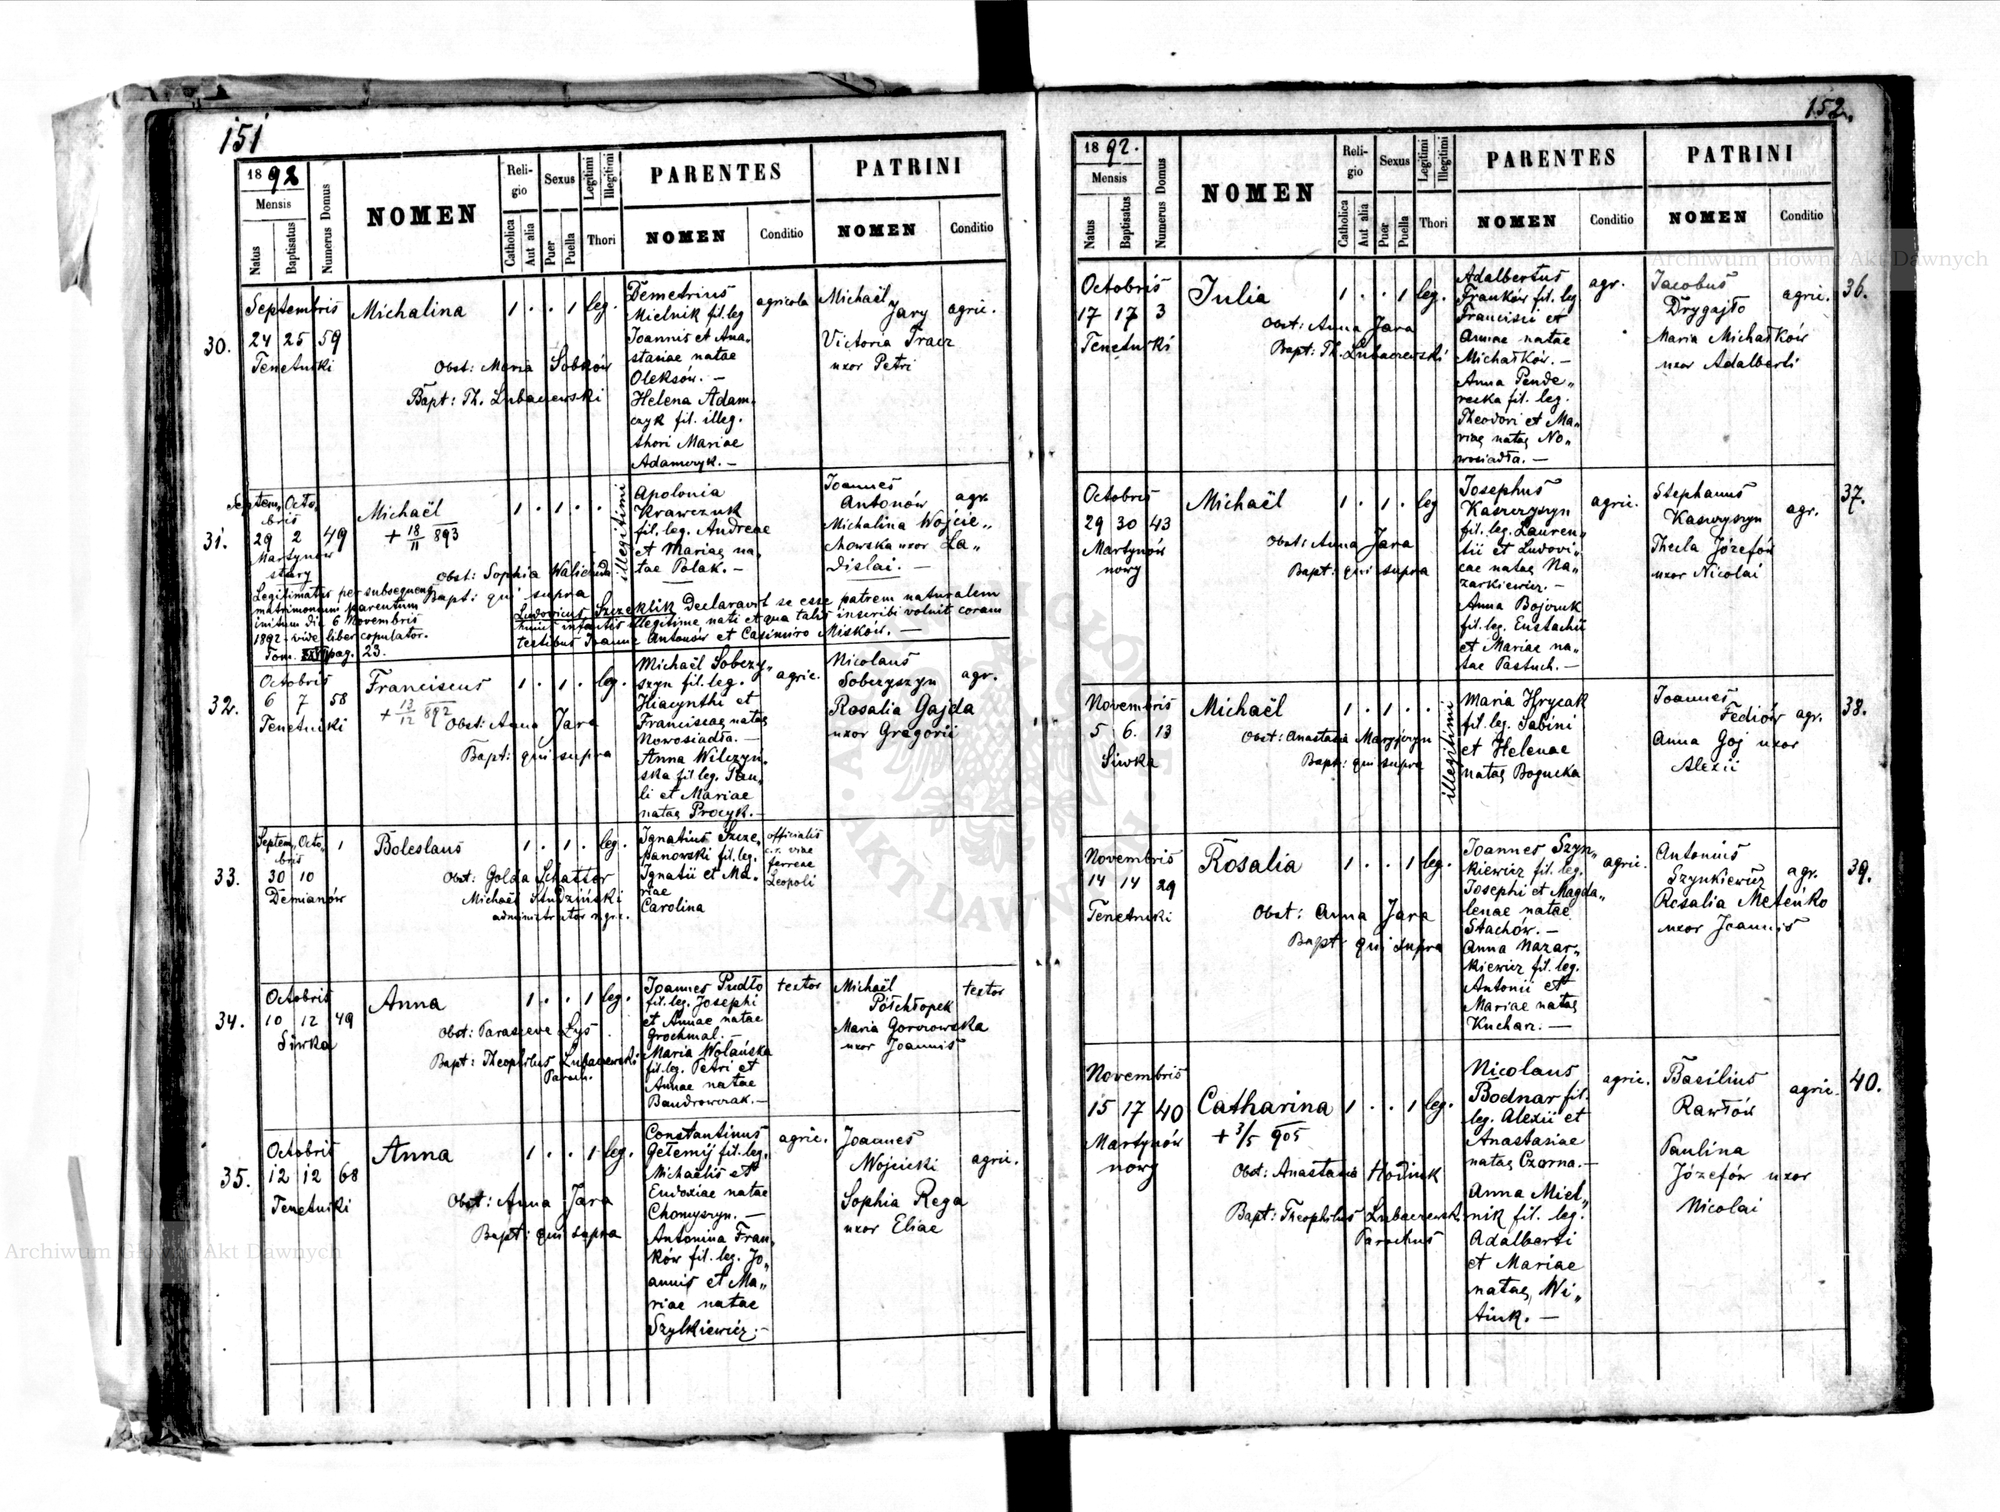 151
1892
Mensis
Natus
Baptisatus
Numerus Domus
NOMEN
Religio
Catholica
Aut alia
Sexus
Puer
Puella
Legitimi
Illegitimi
Thori
PARENTES
NOMEN
Conditio
PATRINI
NOMEN
Conditio
30.
Septembris
24 25 59
Tenetniki
Michalina
1 . . 1 leg.
Obst: Maria Sobków
Bapt: Th. Lubaczewski
Demetrius
Mielnik fil. leg
Joannis et Ana„
stasiae natae
Oleksów. —
Helena Adam„
czyk fil. illeg.
thori Mariae
Adamczyk. —
agricola
Michaël
Jary
Victoria Tracz
uxor Petri
agric.
31.
Septem, Octo„
bris
29 2 49
Martynów
stary
Michaël
+ 18/11 893
1 . 1 . .
illegitimi
Obst: Sophia
Bapt: qui supra
Apolonia
Krawczuk
fil. leg. Andreae
et Mariae na„
tae Polak. —
Joannes
Antonów
Michalina Wojcie„
chowska uxor La„
dislai. —
agr.
Legitimatus per subsequens
matrimonium parentum
initum die 6 Novembris
1892 - vide liber copulator.
Tom. pag. 23.
Ludovicus Szczeklik declaravit se esse patrem naturalem
hujus infantis illegitime nati et qua talis inscribi voluit coram
testibus Joanne Antonów et Casimiro Miśków. —
32.
Octobris
6 7 58
Tenetniki
Franciscus
+ 13/12 892
1 . 1 . leg.
Obst: Anna Jara
Bapt: qui supra
Michaël Sobczy„
szyn fil. leg.
Hiacynthi et
Franciscae natae
Nowosiadła. —
Anna Wilczyń„
ska fil. leg. Pau„
li et Mariae
natae Procyk. —
agric.
Nicolaus
Sobczyszyn
Rosalia Gajda
uxor Gregorii
agr.
33.
Septem, Octo„
bris
30 10
1
Demianów
Boleslaus
1 . 1 . leg.
Obst: Golda Schatter
Michaël Studziński
administrator
Ignatius Szcze„
panowski fil. leg.
Ignatii et Ma„
riae
Carolina
officialis
c.r. viae
ferreae
Leopoli
34.
Octobris
10 12 49
Siwka
Anna
1 . . 1 leg.
Obst: Parasceve Lys
Bapt: Theophilus Lubaczewski
Paroch.
Joannes Pudło
fil. leg. Josephi
et Annae natae
Grochmal. —
Maria Wolańska
fil. leg. Petri et
Annae natae
Bandrowczak. —
textor
Michaël
Półchłopek
Maria Gorzowska
uxor Joannis
textor
35.
Octobris
12 12 68
Tenetniki
Anna
1 . . 1 leg.
Obst: Anna Jara
Bapt: qui supra
Constantinus
Gełemij fil. leg.
Michaëlis et
Eudoxiae natae
Chomyszyn. —
Antonina Fran„
ków fil. leg. Jo„
annis et Ma„
riae natae
Szylkiewicz. —
agric.
Joannes
Wojcicki
Sophia Rega
uxor Eliae
agric.
152.
1892.
Mensis
Natus
Baptisatus
Numerus Domus
NOMEN
Religio
Catholica
Aut alia
Sexus
Puer
Puella
Legitimi
Illegitimi
Thori
PARENTES
NOMEN
Conditio
PATRINI
NOMEN
Conditio
Octobris
17 17 3
Tenetniki
Julia
1 . . 1 leg.
Obst: Anna Jara
Bapt: Th. Lubaczewski
Adalbertus
Franków fil. leg
Francisci et
Annae natae
Michałków. —
Anna Pende„
recka fil. leg.
Theodori et Ma„
riae natae No„
wosiadła. —
agr.
Jacobus
Drygajło
Maria Michałków
uxor Adalberti
agric.
36.
Octobris
29 30 43
Martynów
nowy
Michaël
1 . 1 . leg
Obst: Anna Jara
Bapt: qui supra
Josephus
Kaszczyszyn
fil. leg. Lauren„
tii et Ludovi„
cae natae Na„
zarkiewicz. —
Anna Bojczuk
fil. leg. Eustachii
et Mariae na„
tae Pastuch. —
agric.
Stephanus
Kaszczyszyn
Thecla Józefów
uxor Nicolai
agr.
37.
Novembris
5 6. 13
Siwka
Michaël
1 . 1 . .
illegitimi
Obst: Anastasia
Bapt: qui supra
Maria Hrycak
fil. leg. Sabini
et Helenae
natae Bogucka
Joannes
Fediów
Anna Goj uxor
Alexii
agr.
38.
Novembris
14 14 29
Tenetniki
Rosalia
1 . . 1 leg.
Obst: Anna Jara
Bapt qui supra
Joannes Szyn„
kiewicz fil. leg.
Josephi et Magda„
lenae natae
Stachów. —
Anna Nazar„
kiewicz fil. leg.
Antonii et
Mariae natae
Kuchar. —
agric.
Antonius
Szynkiewicz
Rosalia Meteńko
uxor Joannis
agr.
39.
Novembris
15 17 40
Martynów
nowy
Catharina
+ 3/5 905
1 . . 1 leg.
Obst: Anastasia Hodiuk
Bapt: Theophilus Lubaczewski
Parochus
Nicolaus
Bodnar fil.
leg. Alexii et
Anastasiae
natae Czorna. —
Anna Miel„
nik fil. leg.
Adalberti
et Mariae
natae Wi„
tiuk. —
agric.
Basilius
Rawłów
Paulina
Józefów uxor
Nicolai
agric.
40.
Archiwum Główne Akt Dawnych
Archiwum Główne Akt Dawnych